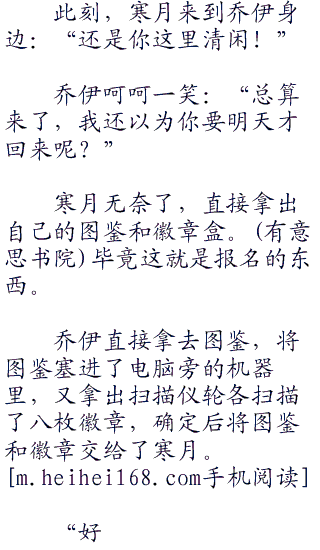 此刻，寒月来到乔伊身
边：“还是你这里清闲！”
乔伊呵呵一笑：“总算
来了，我还以为你要明天才
回来呢？”
寒月无奈了，直接拿出
自己的图鉴和徽章盒。(有意
思书院)毕竟这就是报名的东
西。
乔伊直接拿去图鉴，将
图鉴塞进了电脑旁的机器
里，又拿出扫描仪轮各扫描
了八枚徽章，确定后将图鉴
和徽章交给了寒月。
[m.heihei168.com手机阅读]
“好